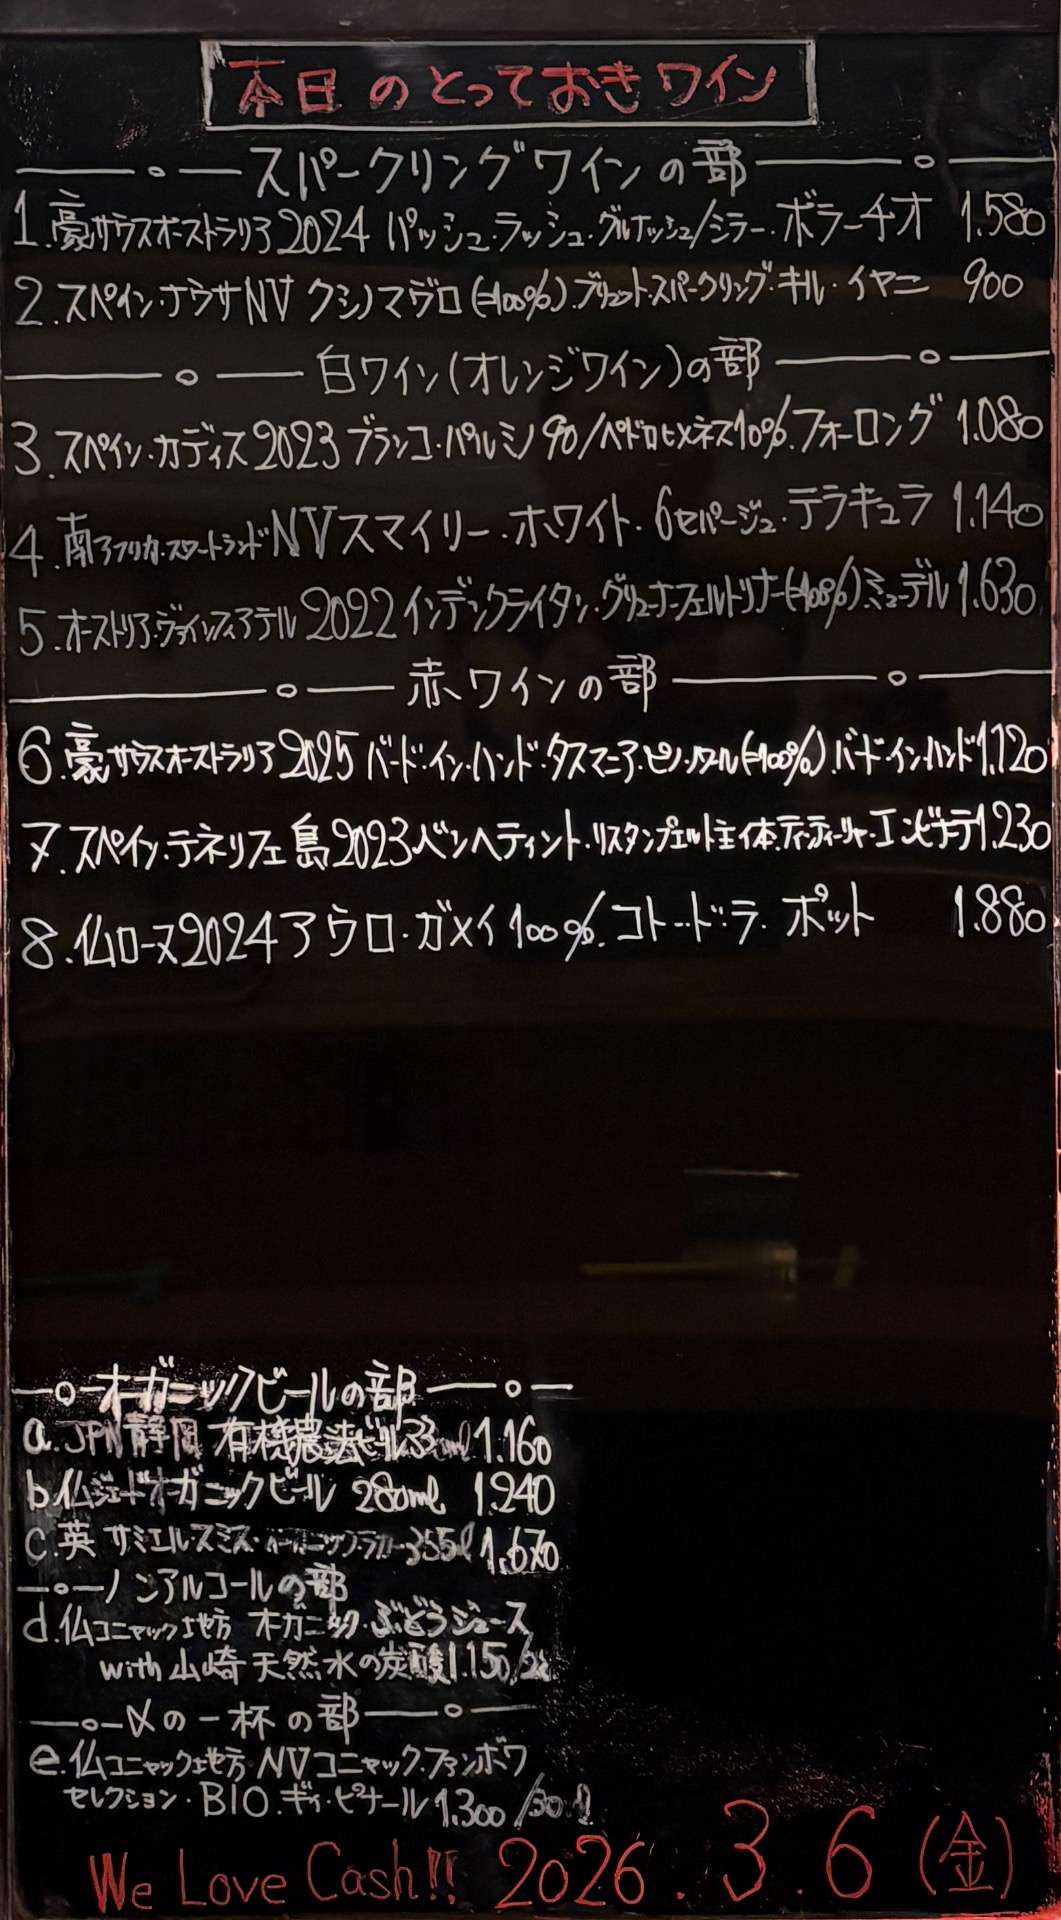 本日のとっておきワイン
スパークリングワインの部
1.豪サウスオーストラリア2024 パッシュ・ラッシュ・グルナッシュ/シラー・ボラーチオ 1.580
2.スペイン・ナウサNV クシノマヴロ(=100%).ブリュット・スパークリング・キル・イヤニ 900
白ワイン(オレンジワイン)の部
3.スペイン・カディス2023 ブランコ・パルミノ90/ペドロヒメネス10%.フォーロング 1.080
4.南アフリカ・スワートランドNVスマイリー・ホワイト・6セパージュ・テラキュラ 1.140
5.オーストリア・ヴァインフィアテル 2022インデックライタン・グリューナーフェルトリナー(=100%)ミューデル 1.630
赤ワインの部
6.豪サウスオーストラリア2025 バード・イン・ハンド・タスマニア・ピノ・ノワール(=100%).バード・イン・ハンド 1.120
7.スペイン・テネリフェ島2023ベンヘティント・リスタンプエルト主体・ティティーリャ・エンビナテ 1.230
8.仏ローヌ2024アウロ・ガメイ100%.コトー・ド・ラ・ポット 1.880
オーガニックビールの部
a.JPN静岡 有機農法ビール 33 ml 1.160
b.仏ジェードオーガニックビール 280ml 1.240
c.英 サミエルスミス・オーガニックラガー355 1.670
ノンアルコールの部
d.仏コニャック地方 オーガニック・ぶどうジュース
with山崎天然水の炭酸 1.150
〆の一杯の部
e.仏コニャック地方 NVコニャック・ファンボワ
セレクション・BIO.ギィ・ピナール 1.300/30ml
We Love Cash!! 2026.3.6(金)